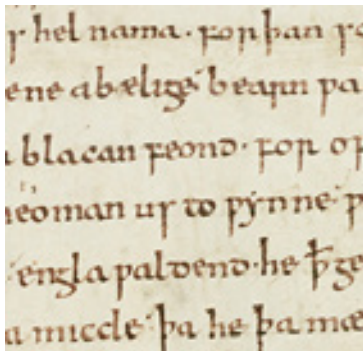 s hel nama · for þan sc
ene abælige bearn ƿa
blacan feond · for of
neoman us to ƿynne · ƿ
engla ƿaldend · he ꝥ ge
a miccle þa he þa mæ